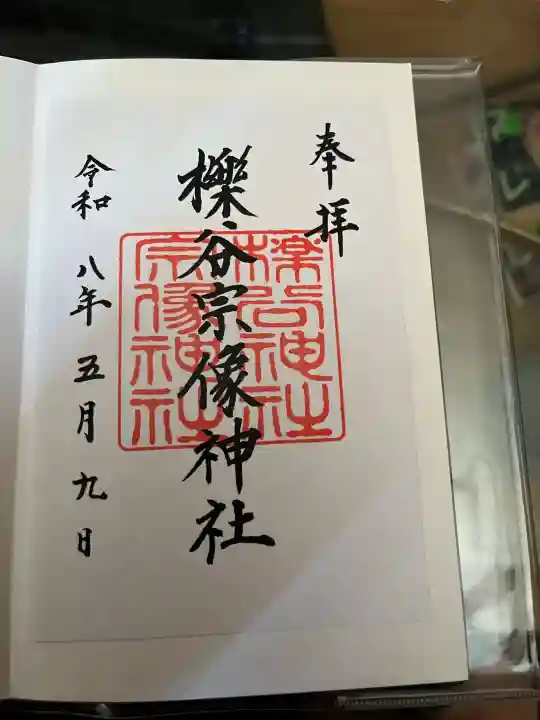 奉拝
櫟谷宗像神社
令和八年五月九日
櫟谷神社
宗像神社